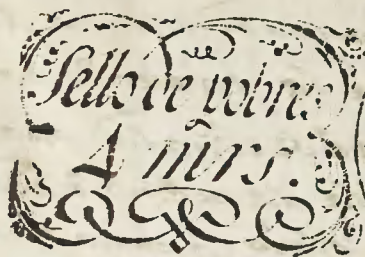 Sello de pobres
4 mr̃s.